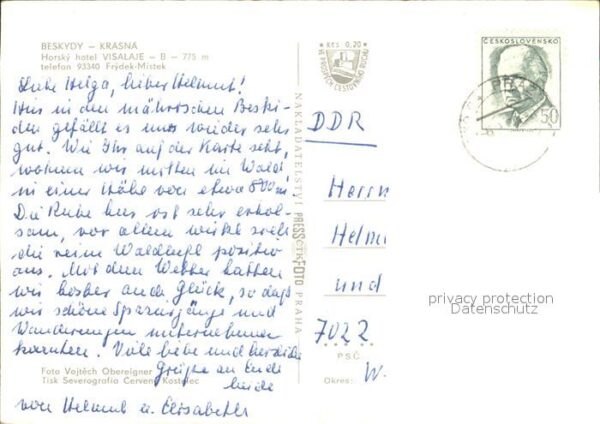 BESKYDY — KRÁSNÁ
Horský hotel VISALAJE — B — 775 m
telefon 93340 Frýdek-Místek
Liebe Helga, lieber Helmut!
Hier in den mährischen Beski-
den gefällt es uns wieder sehr
gut. Wie Ihr auf der Karte seht,
wohnen wir mitten im Wald,
in einer Höhe von etwa 800 m.
Die Ruhe hier ist sehr erhol-
sam, vor allem wirkt sich
die reine Waldluft positiv
aus. Mit dem Wetter hatten
wir bisher auch Glück, so daß
wir schöne Spaziergänge und
Wanderungen unternehmen
konnten. Viele liebe und herzliche
Grüße an Euch
beide
von Helmut u. Elisabeth
Foto Vojtěch Obereigner
Tisk Severografia Červený Kostelec
NAKLADATELSTVÍ PRESSFOTO PRAHA
ČTK
Kčs 0,20
VE PROSPĚCH CESTOVNÍHO RUCHU
ČESKOSLOVENSKO
50
PRA
DDR
Herrn
Helm
und
7022
PSČ
Okres:
W.
privacy protection
Datenschutz